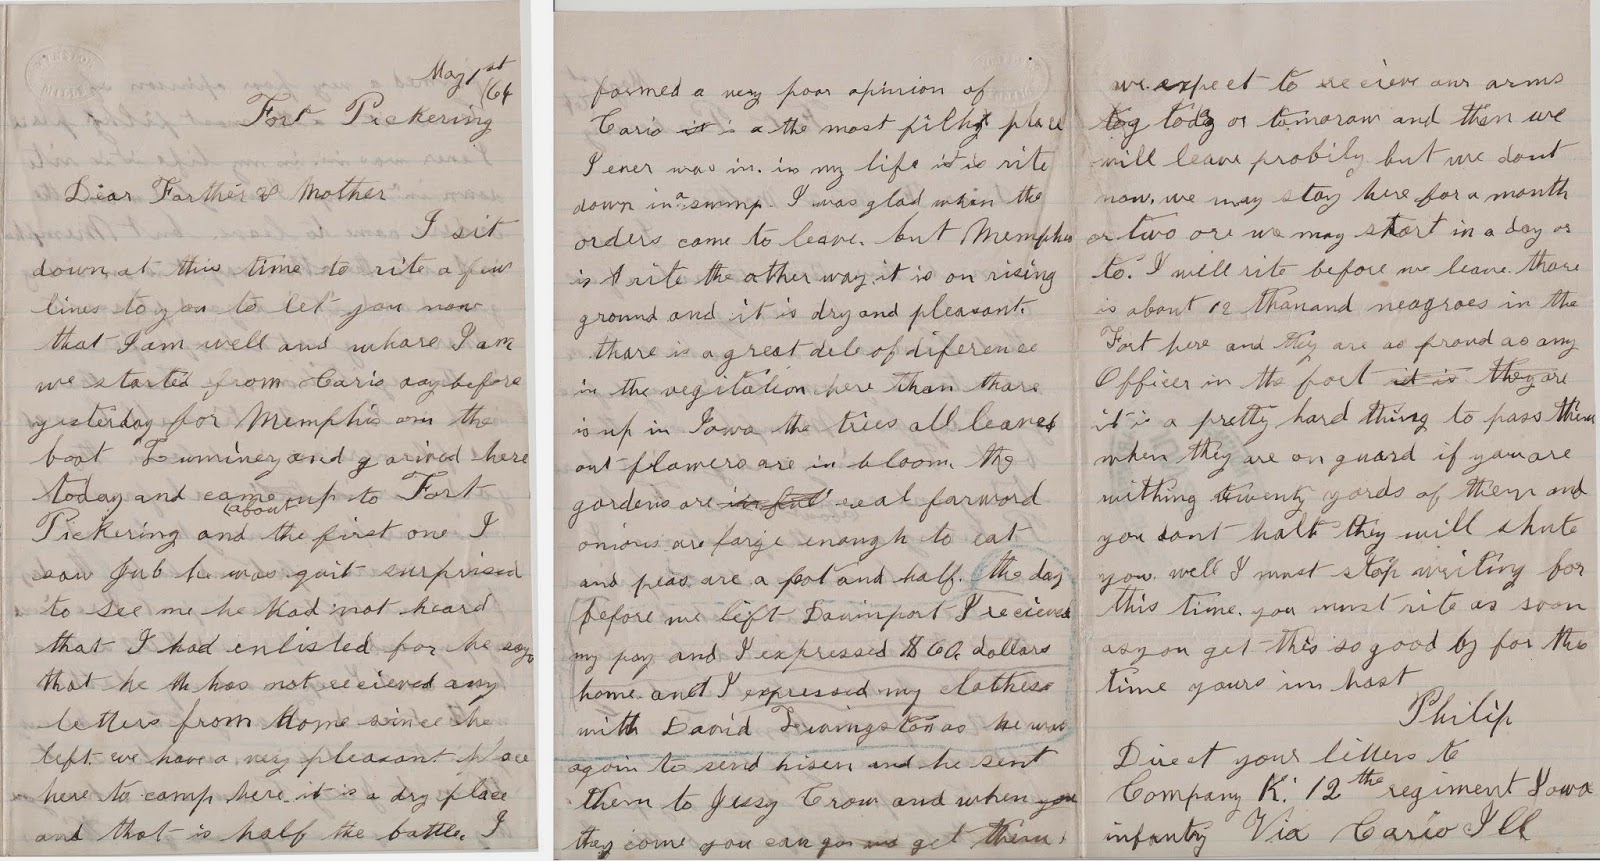 May 1st /64
Fort Pickering
Dear Farther & Mother
I sit
down at this time to rite a few
lines to you to let you now
that I am well and whare I am
we started from Cario day before
yesterday for Memphis on the
boat and arived here
today and came up to Fort
Pickering and about the first one I
saw Jub he was quit surprised
to see me he had not heard
that I had enlisted for he says
that he has not recieved any
letters from home since he
left we have a very pleasant place
here to camp here it is a dry place
and that is half the battle. I
formed a very poor opinion of
Cario it is a the most filhy place
I ever was in. in my life it is rite
down in a swmp. I was glad when the
orders come to leave. but Memphis
is rite the other way it is on rising
ground and it is dry and pleasant.
thare is a great dele of diference
in the vegitation here than thare
is up in Iowa the trees all leaves
out flowers are in bloom. the
gardens are in ful real farword
onions are large enough to eat
and peas are a foot and half. the day
before we left Davinport I recieved
my pay and I expressed $60. dollars
home. and I expressed my clothes
with David Livingston as he was
again to send hisen and he sent
them to Jessy Crow and when you
they come you can go get them.
we expect to recieve our arms
tog today or tomoraw and then we
will leave probily but we dont
now. we may stay here for a month
or two ore we may start in a day or
to. I will rite before we leave. thare
is about 12 thousand neagroes in the
Fort here and they are as proud as any
Officer in the fort it is they are
it is a pretty hard thing to pass them
when they are on guard if you are
withing twenty yards of them and
you dont halt they will shute
you. well I must stop writing for
this time. you must rite as soon
as you get this so good by for the
time yours in hast
Philip
Direct your letters to
Company K. 12the regiment Iowa
infantry Via Cario Ill